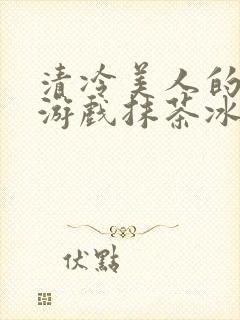 清冷美人的
游戏抹茶冰
伏點